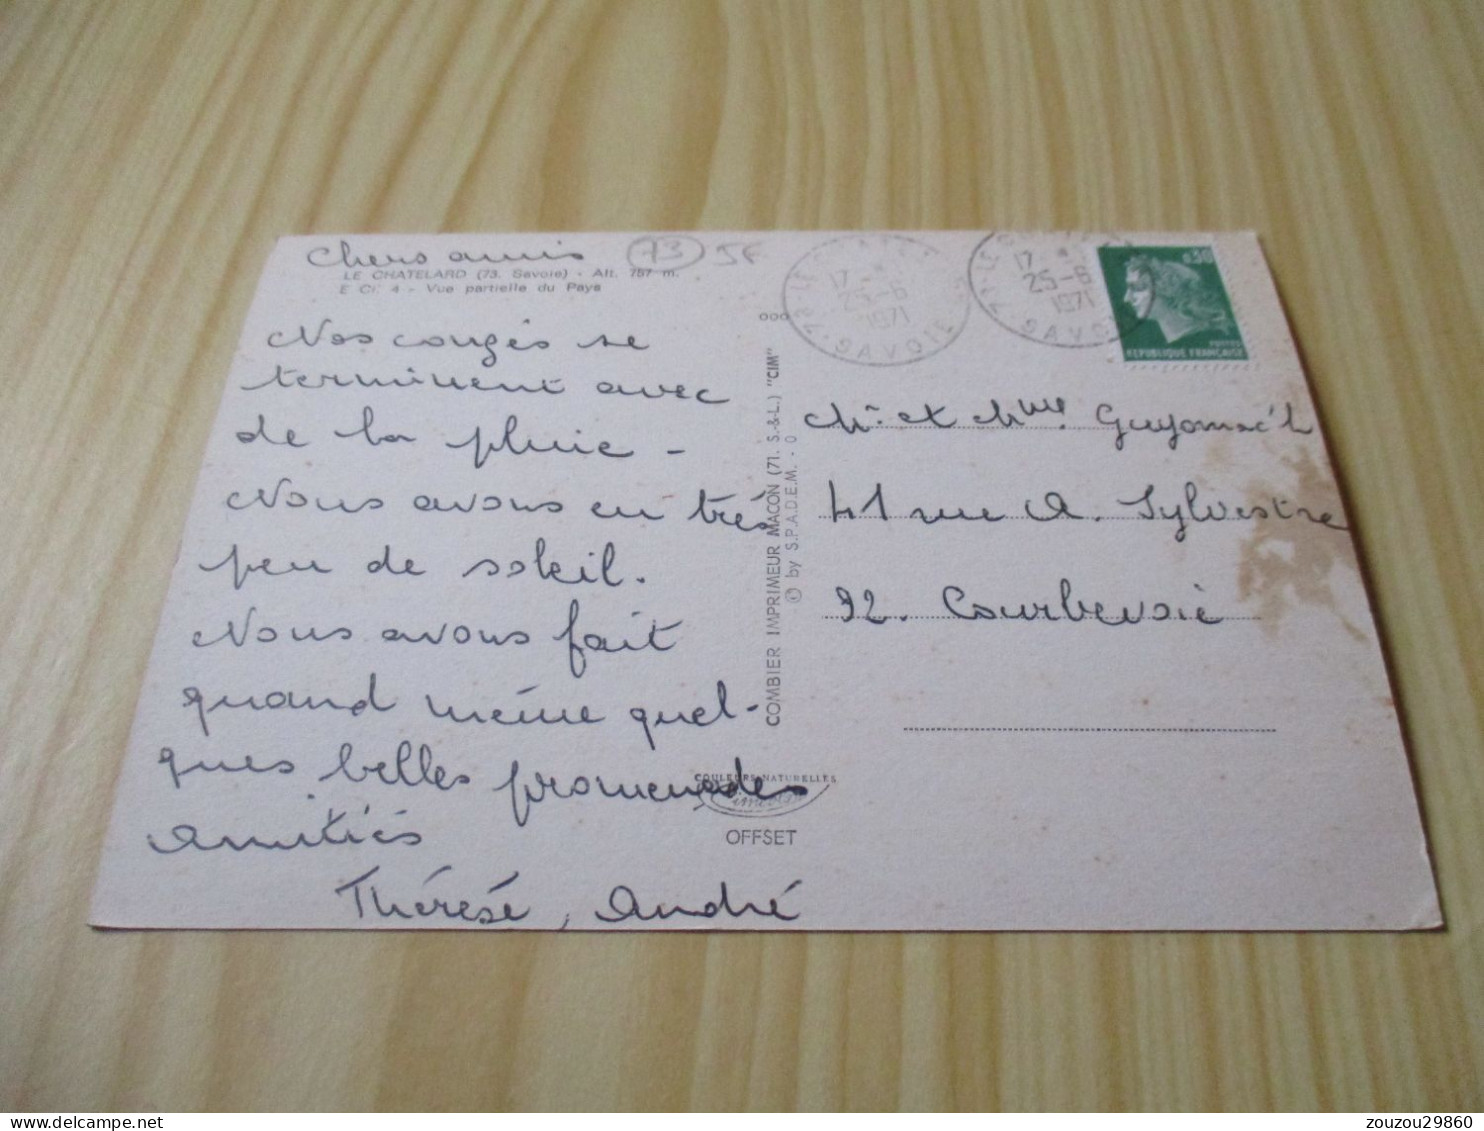 Chers amis
73
5F
LE CHATELARD (73. Savoie) - Alt. 757 m.
E Ci. 4 - Vue partielle du Pays
Nos congés se
terminent avec
de la pluie -
Nous avons eu très
peu de soleil.
Nous avons fait
quand même quel-
ques belles promenades
Amitiés
Thérèse, André
COMBIER IMPRIMEUR MACON (71. S.-&-L.) "CIM"
© by S.P.A.D.E.M. - 0
COULEURS NATURELLES
OFFSET
17
25-6
1971
SAVOIE
17
25-6
1971
SAVO
0,30
POSTES
REPUBLIQUE FRANÇAISE
Mr et Mme Guyomac'h
41 rue A. Sylvestre
92. Courbevoie
zouzou29860